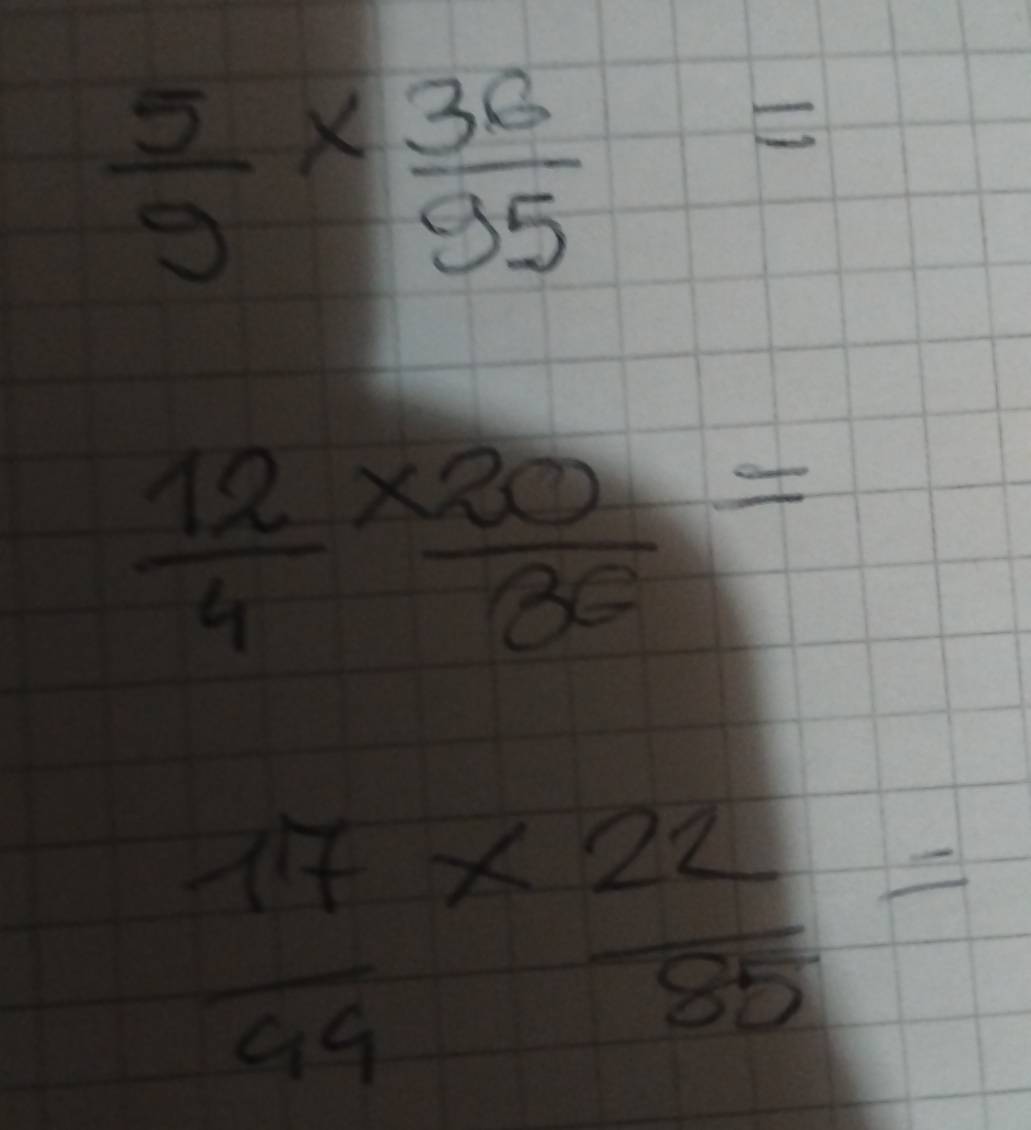 5/9 × 36/95 =
12/4 × 20/36 =
17/44 × 22/85 =